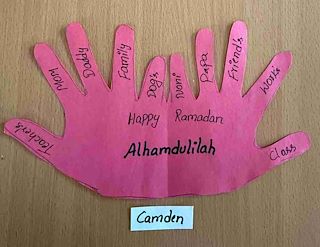 Teacher's
Mom
Daddy
Family
Dog's
Noni
Papa
Friend's
Work's
Class
Happy Ramadan
Alhamdulilah
Camden